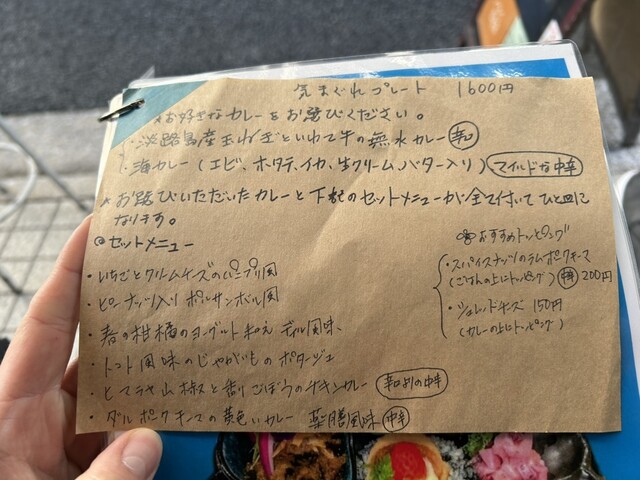 気まぐれプレート 1600円
★お好きなカレーをお選びください。
・淡路島産玉ねぎといわて牛の無水カレー 辛口
・海カレー（エビ、ホタテ、イカ、生クリーム、バター入り）マイルドな中辛
★お選びいただいたカレーと下記のセットメニューが全て付いてひと皿に
なります。
◎セットメニュー
・いちごとクリームチーズのパニプリ風
・ピーナッツ入り ポルサンボル風
・春の柑橘のヨーグルト和え ディル風味
・トマト風味のじゃがいものポタージュ
・ヒマラヤ山椒と香りごぼうのチキンカレー 辛口よりの中辛
・ダルポークキーマの黄色いカレー 薬膳風味 中辛
おすすめトッピング
・スパイスナッツのラムポークキーマ
（ごはんの上にトッピング）中辛 200円
・シュレッドチーズ 150円
（カレーの上にトッピング）